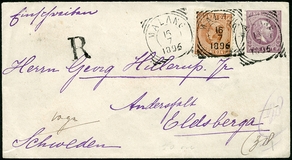 Einschreiben
R
MALANG
16
7
1896
MALANG
16
7
1896
Herrn Georg Hillerup Jr
Andersfalt
Eldsberga
via
Schweden